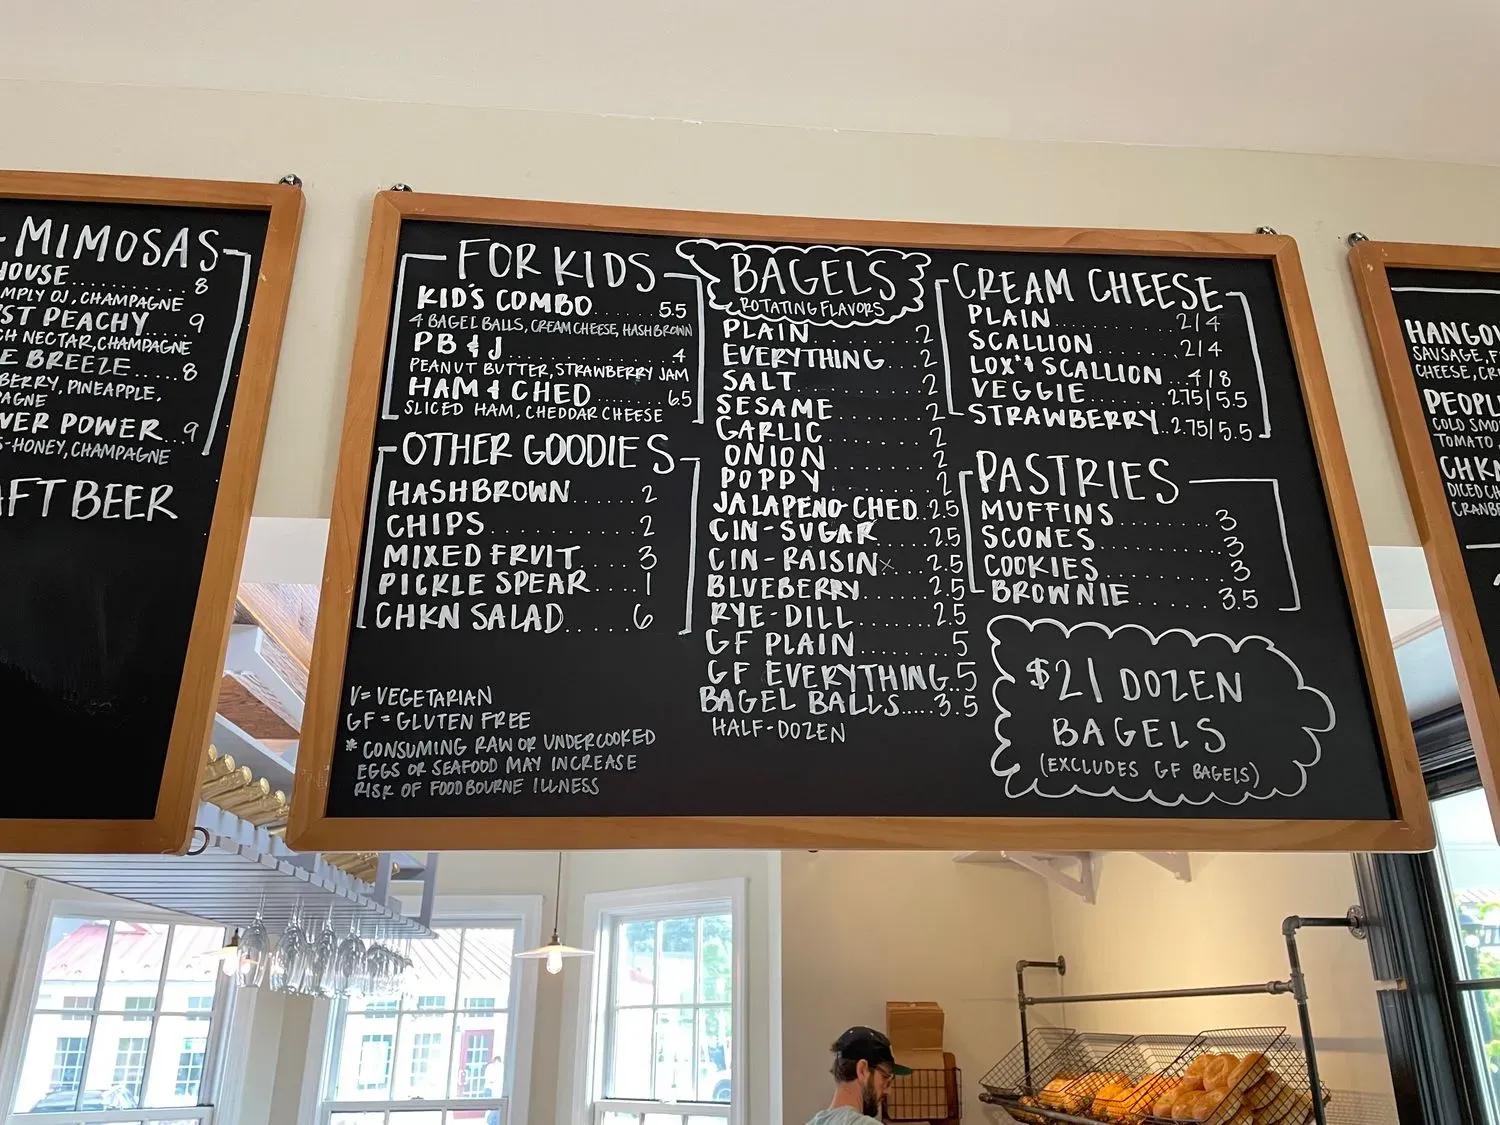 MIMOSAS
HOUSE........8
SIMPLY OJ, CHAMPAGNE
PEACHY....9
NECTAR, CHAMPAGNE
BREEZE.....8
BERRY, PINEAPPLE,
POWER..9
HONEY, CHAMPAGNE
BEER
FOR KIDS
KID'S COMBO........5.5
4 BAGEL BALLS, CREAM CHEESE, HASHBROWN
PB & J............4
PEANUT BUTTER, STRAWBERRY JAM
HAM & CHED.....6.5
SLICED HAM, CHEDDAR CHEESE
OTHER GOODIES
HASHBROWN.....2
CHIPS..........2
MIXED FRUIT....3
PICKLE SPEAR....1
CHKN SALAD.....6
V = VEGETARIAN
GF = GLUTEN FREE
* CONSUMING RAW OR UNDERCOOKED
EGGS OR SEAFOOD MAY INCREASE
RISK OF FOODBOURNE ILLNESS
BAGELS
ROTATING FLAVORS
PLAIN........2
EVERYTHING...2
SALT........2
SESAME.......2
GARLIC.......2
ONION.......2
POPPY.......2
JALAPENO-CHED..2.5
CIN-SUGAR.....2.5
CIN-RAISIN....2.5
BLUEBERRY.....2.5
RYE-DILL......2.5
GF PLAIN.......5
GF EVERYTHING..5
BAGEL BALLS....3.5
HALF-DOZEN
CREAM CHEESE
PLAIN..........2/4
SCALLION.......2/4
LOX & SCALLION..4/8
VEGGIE......2.75/5.5
STRAWBERRY..2.75/5.5
PASTRIES
MUFFINS.......3
SCONES........3
COOKIES.......3
BROWNIE......3.5
$21 DOZEN
BAGELS
(EXCLUDES GF BAGELS)
SAUSAGE,
CHEESE,
TOMATO
CHKN